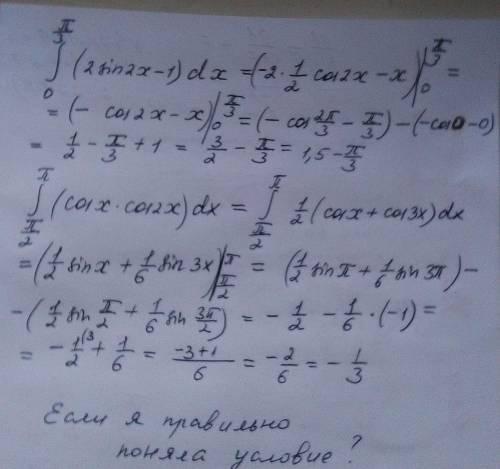 ∫₀^(π/3) (2sin2x-1) dx = (-2·1/2 cos2x - x)|₀^(π/3) =
= (- cos2x - x)|₀^(π/3) = (- cos 2π/3 - π/3) - (-cos0 - 0)
= 1/2 - π/3 + 1 = 3/2 - π/3 = 1,5 - π/3
∫_(π/2)^π (cosx · cos2x) dx = ∫_(π/2)^π 1/2 (cosx + cos3x) dx
= (1/2 sinx + 1/6 sin 3x)|_(π/2)^π = (1/2 sin π + 1/6 sin 3π) -
- (1/2 sin π/2 + 1/6 sin 3π/2) = - 1/2 - 1/6 · (-1) =
= - 1/2 ⁽³ + 1/6 = (-3+1)/6 = - 2/6 = - 1/3
Если я правильно
поняла условие?